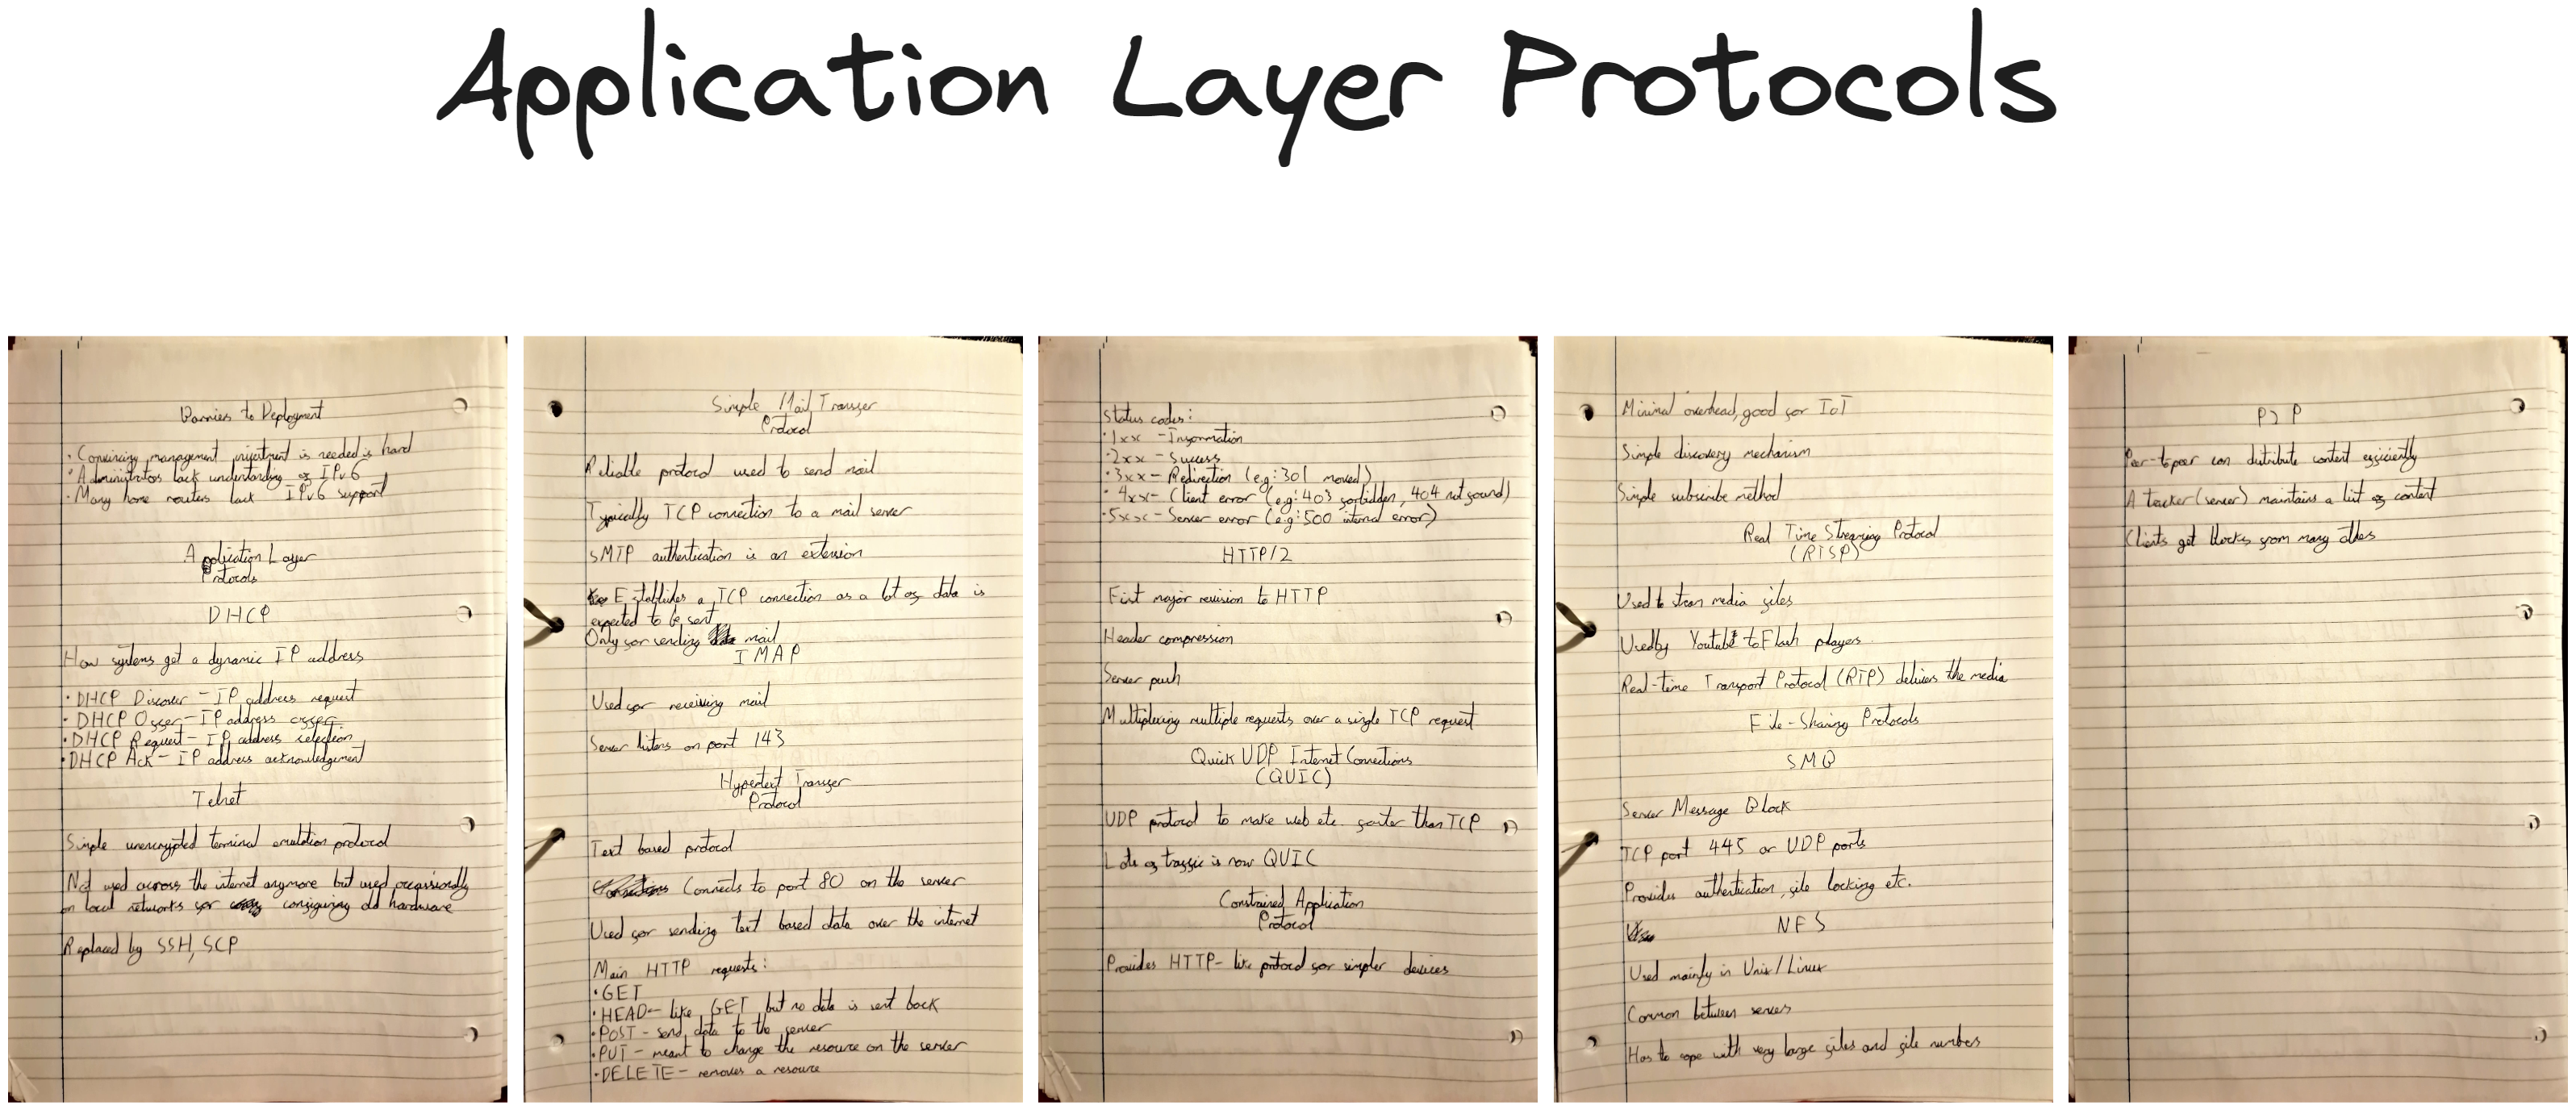 Application Layer Protocols
Barriers to Deployment
· Convincing management investment is needed is hard
· Administrators lack understanding of IPv6
· Many home routers lack IPv6 support
Application Layer
Protocols
DHCP
How systems get a dynamic IP address
· DHCP Discover - IP address request
· DHCP Offer - IP address offer
· DHCP Request - IP address selection
· DHCP Ack - IP address acknowledgement
Telnet
Simple unencrypted terminal emulation protocol
Not used across the internet anymore but used occassionally
on local networks for configuring old hardware
Replaced by SSH, SCP
Simple Mail Transfer
Protocol
Reliable protocol used to send mail
Typically TCP connection to a mail server
SMTP authentication is an extension
Establishes a TCP connection as a lot of data is
expected to be sent
Only for sending mail
IMAP
Used for receiving mail
Server listens on port 143
Hypertext Transfer
Protocol
Text based protocol
Connects to port 80 on the server
Used for sending text based data over the internet
Main HTTP requests:
· GET
· HEAD - like GET but no data is sent back
· POST - send data to the server
· PUT - meant to change the resource on the server
· DELETE - removes a resource
Status codes:
· 1xx - Information
· 2xx - Success
· 3xx - Redirection (e.g: 301 moved)
· 4xx - Client error (e.g: 403 forbidden, 404 not found)
· 5xx - Server error (e.g: 500 internal error)
HTTP/2
First major revision to HTTP
Header compression
Server push
Multiplexing multiple requests over a single TCP request
Quick UDP Internet Connections
(QUIC)
UDP protocol to make web etc. faster than TCP
Lots of traffic is now QUIC
Constrained Application
Protocol
Provides HTTP-like protocol for simpler devices
Minimal overhead, good for IoT
Simple discovery mechanism
Simple subscribe method
Real Time Streaming Protocol
(RTSP)
Used to stream media files
Used by Youtube to Flash players
Real-time Transport Protocol (RTP) delivers the media
File-Sharing Protocols
SMB
Server Message Block
TCP port 445 or UDP ports
Provides authentication, file locking etc.
NFS
Used mainly in Unix/Linux
Common between servers
Has to cope with very large files and file numbers
P2P
Peer-to-peer can distribute content efficiently
A tracker (server) maintains a list of content
Clients get blocks from many others